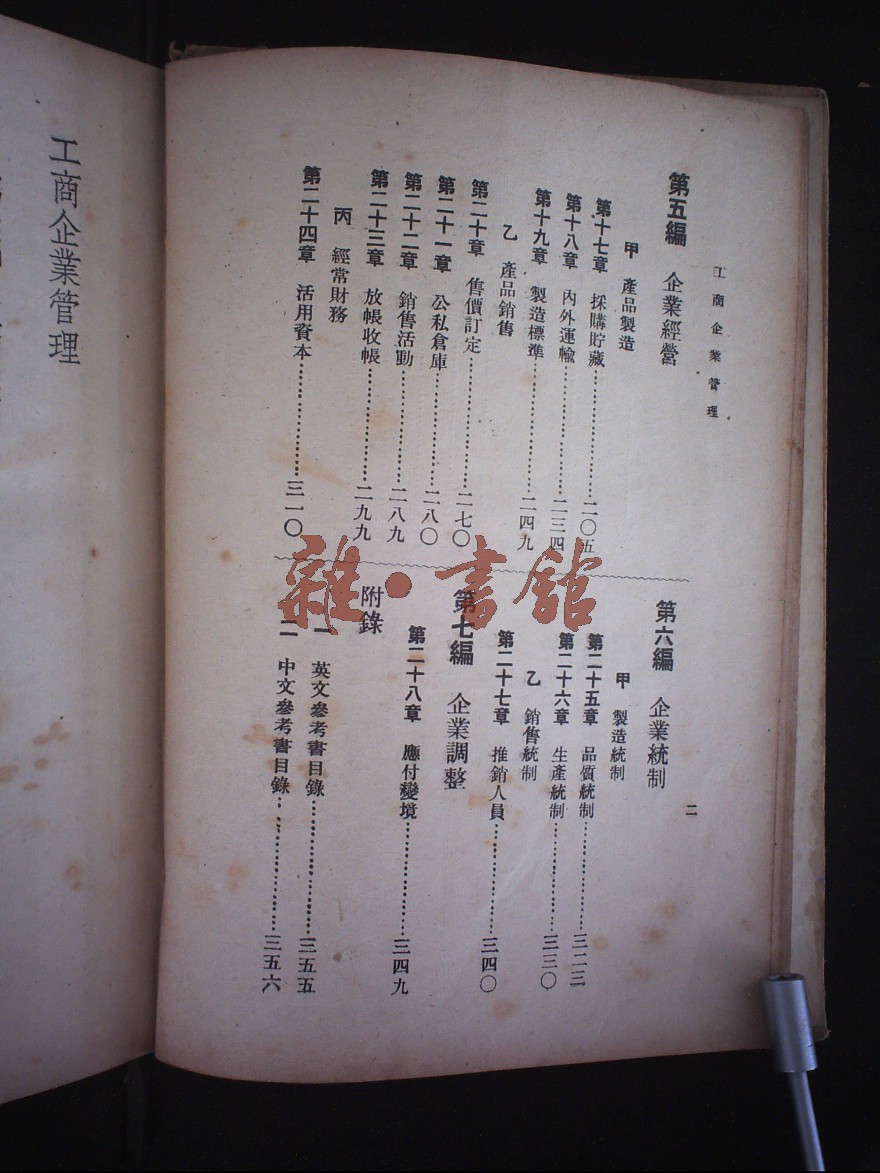 工商企業管理
二
第五編 企業經營
甲 產品製造
第十七章 採購貯藏……二〇五
第十八章 內外運輸……二三四
第十九章 製造標準……二四九
乙 產品銷售
第二十章 售價訂定……二七〇
第二十一章 公私倉庫……二八〇
第二十二章 銷售活動……二八九
第二十三章 放帳收帳……二九九
丙 經常財務
第二十四章 活用資本……三一〇
第六編 企業統制
甲 製造統制
第二十五章 品質統制……三二三
第二十六章 生產統制……三三〇
乙 銷售統制
第二十七章 推銷人員……三四〇
第七編 企業調整
第二十八章 應付變境……三四九
附錄
一 英文參考書目錄……三五五
二 中文參考書目錄……三五六
工商企業管理
雜·書館